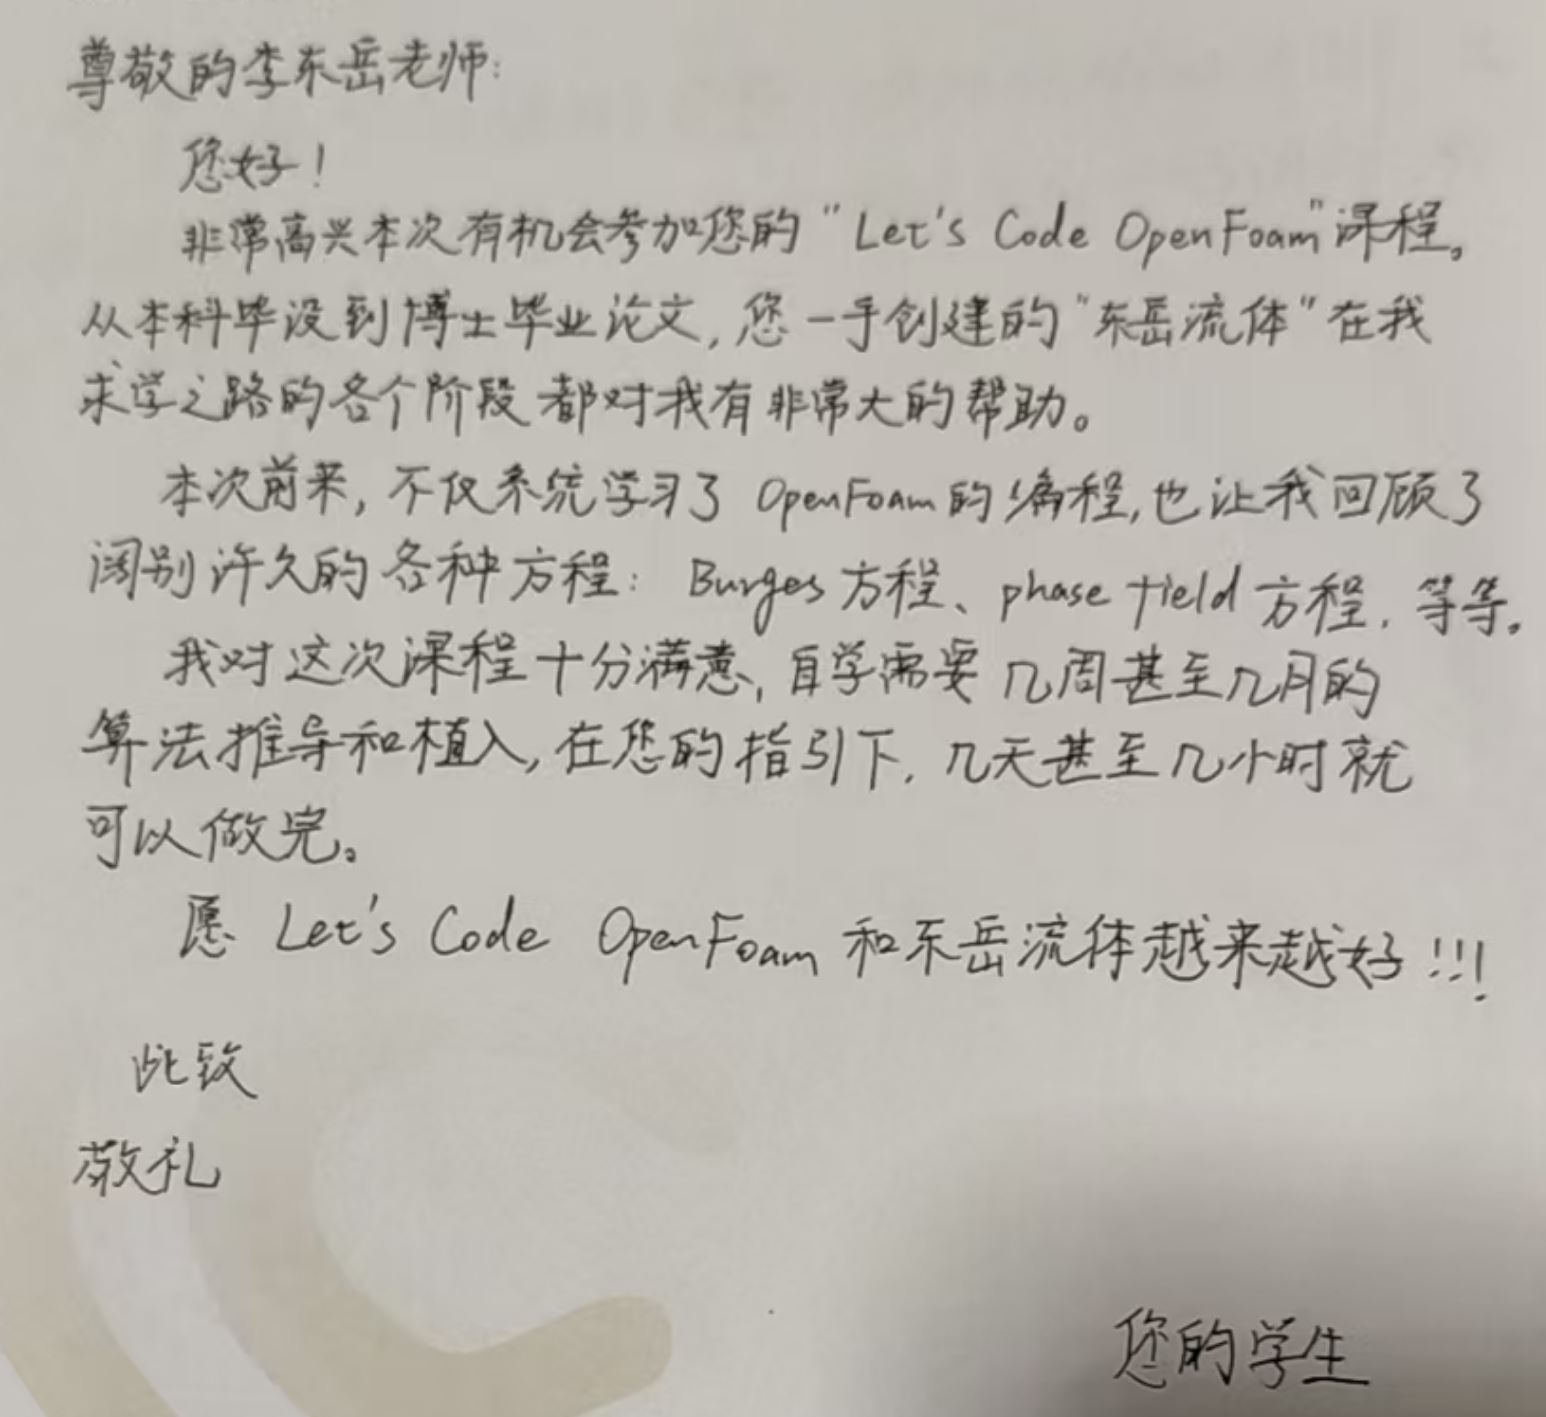 尊敬的李东岳老师:
您好!
非常高兴本次有机会参加您的"Let's Code OpenFoam"课程。
从本科毕设到博士毕业论文,您一手创建的"东岳流体"在我
求学之路的各个阶段都对我有非常大的帮助。
本次前来,不仅系统学习了OpenFoam的编程,也让我回顾了
阔别许久的各种方程: Burges方程、phase field方程,等等。
我对这次课程十分满意,自学需要几周甚至几月的
算法推导和植入,在您的指引下,几天甚至几小时就
可以做完。
愿 Let's Code OpenFoam 和东岳流体越来越好!!!
此致
敬礼
您的学生